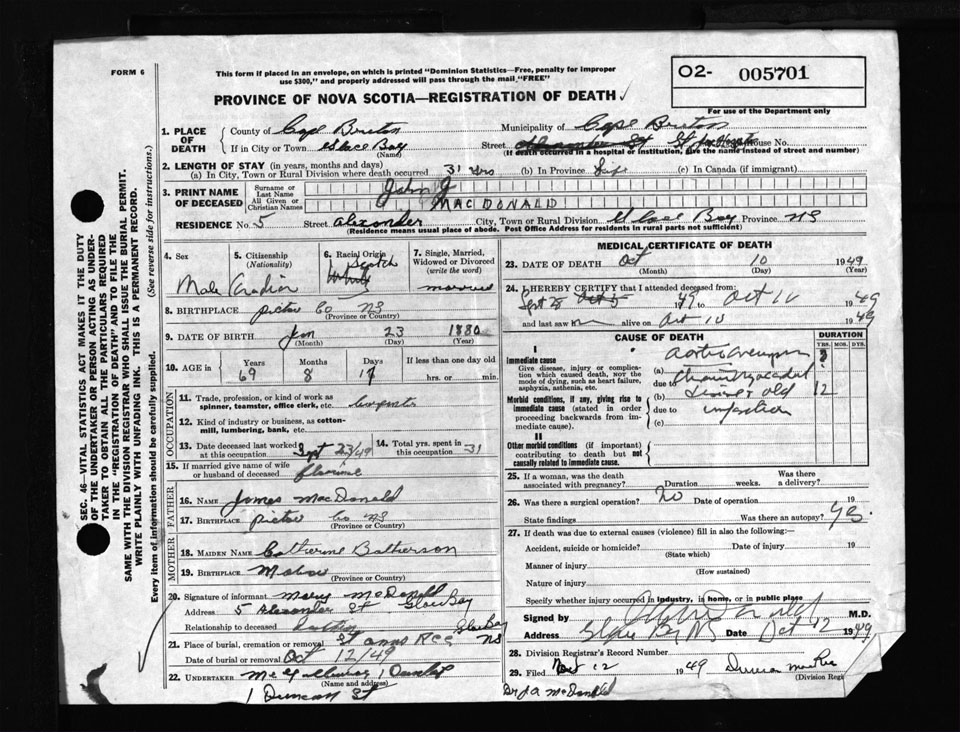 FORM 6
This form if placed in an envelope, on which is printed "Dominion Statistics—Free, penalty for improper
use $300," and properly addressed will pass through the mail "FREE"
O2- 005701
For use of the Department only
PROVINCE OF NOVA SCOTIA—REGISTRATION OF DEATH ✓
1. PLACE OF DEATH
County of Cape Breton Municipality of Cape Breton
If in City or Town Glace Bay (Name) Street St. House No.
(If death occurred in a hospital or institution, give the name instead of street and number)
2. LENGTH OF STAY (in years, months and days)
(a) In City, Town or Rural Division where death occurred 31 yrs (b) In Province Life (c) In Canada (if immigrant)
3. PRINT NAME OF DECEASED
Surname or Last Name John J
All Given or Christian Names MACDONALD
RESIDENCE No. 5 Street Alexander City, Town or Rural Division Glace Bay Province NS
(Residence means usual place of abode. Post Office Address for residents in rural parts not sufficient)
4. Sex Male
5. Citizenship (Nationality) Canadian
6. Racial Origin Scotch
7. Single, Married, Widowed or Divorced (write the word) married
8. BIRTHPLACE Pictou Co NS
(Province or Country)
9. DATE OF BIRTH Jan 23 1880
(Month) (Day) (Year)
10. AGE in Years 69 Months 8 Days 17 If less than one day old hrs. or min.
OCCUPATION
11. Trade, profession, or kind of work as spinner, teamster, office clerk, etc. Carpenter
12. Kind of industry or business, as cotton-mill, lumbering, bank, etc.
13. Date deceased last worked at this occupation Sept 23/49
14. Total yrs. spent in this occupation 31
15. If married give name of wife or husband of deceased
FATHER
16. NAME James MacDonald
17. BIRTHPLACE Pictou Co NS
(Province or Country)
MOTHER
18. MAIDEN NAME Catherine
19. BIRTHPLACE Mabou
(Province or Country)
20. Signature of informant Mary McDonald
Address 5 Alexander St Glace Bay
Relationship to deceased
21. Place of burial, cremation or removal St Anns Glace Bay NS
Date of burial or removal Oct 12/49
22. UNDERTAKER
(Name and address)
1 Duncan St
MEDICAL CERTIFICATE OF DEATH
23. DATE OF DEATH Oct 10 1949
(Month) (Day) (Year)
24. I HEREBY CERTIFY that I attended deceased from:
Sept Oct 5 49 to Oct 1949
and last saw alive on Oct 10 1949
CAUSE OF DEATH
DURATION
YRS. MOS. DYS.
I
Immediate cause
Give disease, injury or complication which caused death, NOT the mode of dying, such as heart failure, asphyxia, asthenia, etc.
(a)
due to
Morbid conditions, if any, giving rise to immediate cause (stated in order proceeding backwards from immediate cause).
(b) old 12
due to
(c)
II
Other morbid conditions (if important) contributing to death but not causally related to immediate cause.
25. If a woman, was the death associated with pregnancy? Duration weeks. Was there a delivery?
26. Was there a surgical operation? no Date of operation 19
State findings Was there an autopsy? yes.
27. If death was due to external causes (violence) fill in also the following:—
Accident, suicide or homicide? Date of injury 19
(State which)
Manner of injury
(How sustained)
Nature of injury
Specify whether injury occurred in industry, in home, or in public place
Signed by M.D.
Address Glace Bay NS Date Oct 12 1949
28. Division Registrar's Record Number
29. Filed 12 1949 Duncan
(Division Regi
Dr J A McDonald
SEC. 46—VITAL STATISTICS ACT MAKES IT THE DUTY
OF THE UNDERTAKER OR PERSON ACTING AS UNDER-
TAKER TO OBTAIN ALL THE PARTICULARS REQUIRED
IN THE "REGISTRATION OF DEATH" AND TO FILE THE
SAME WITH THE DIVISION REGISTRAR WHO SHALL ISSUE THE BURIAL PERMIT.
WRITE PLAINLY WITH UNFADING INK. THIS IS A PERMANENT RECORD.
Every item of information should be carefully supplied. (See reverse side for instructions.)